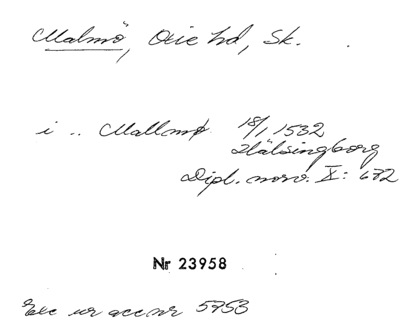 Malmö, Oxie hd, Sk.
i .. Mallmø 18/1 1532
Hälsingborg
Dipl. norv. X: 672
Nr 23958
Exc ur acc nr 5753